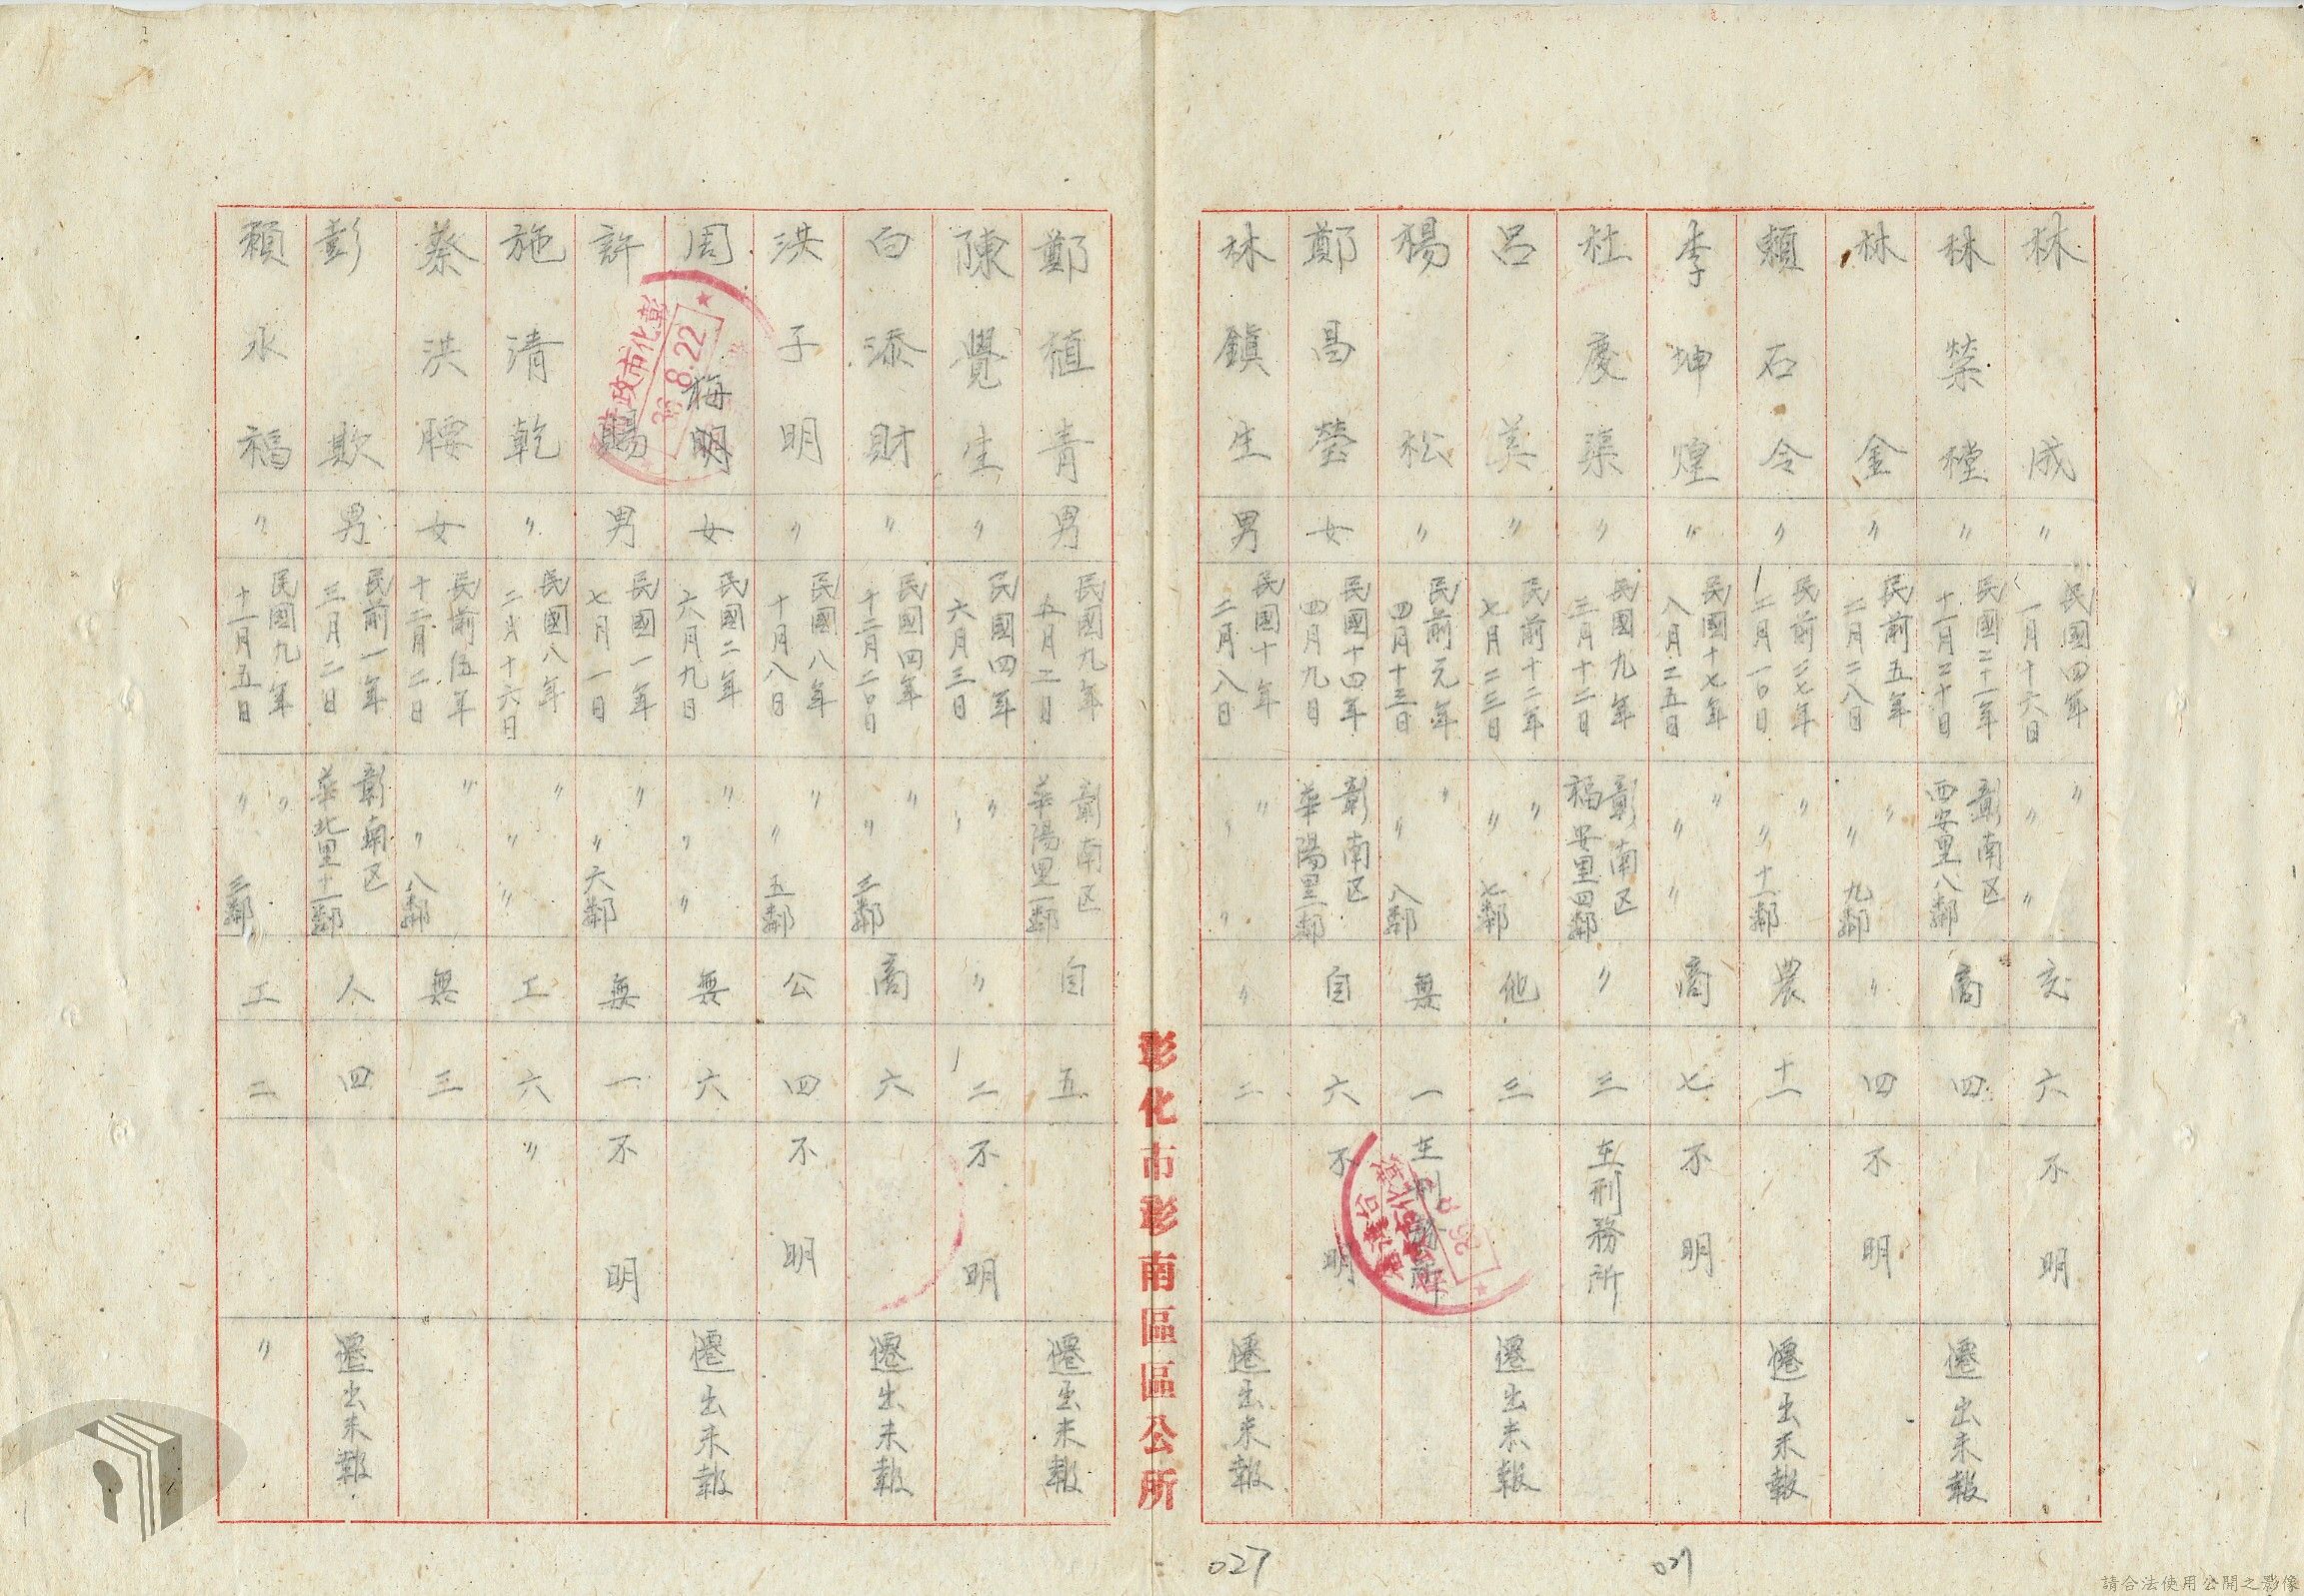 林成 〃 民國四年一月十六日 〃 〃 〃 交 六 不明
林榮樘 〃 民國二十一年十一月二十日 彰南区西安里八鄰 商 四 遷出未報
林金 〃 民前五年二月二八日 〃 〃 九鄰 〃 四 不明
賴石令 〃 民前二七年二月一〇日 〃 〃 十一鄰 農 十一 遷出未報
李坤煌 〃 民國十七年八月二五日 〃 〃 〃 商 七 不明
杜慶渠 〃 民國九年三月十二日 彰南区福安里四鄰 〃 三 在刑務所
呂美 〃 民前十二年七月二三日 〃 〃 七鄰 他 三 遷出未報
楊松 〃 民前元年四月十三日 〃 〃 八鄰 無 一 在刑務所
鄭昌瑩 女 民國十四年四月九日 彰南区華陽里一鄰 自 六 不明
林鎮生 男 民國十年二月八日 〃 〃 〃 〃 二 遷出未報
彰化市彰南區區公所
鄭植青 男 民國九年五月二日 彰南区華陽里一鄰 自 五 遷出未報
陳覺生 〃 民國四年六月三日 〃 〃 〃 二 不明
白添財 〃 民國四年十二月二〇日 〃 〃 三鄰 商 六 遷出未報
洪子明 〃 民國八年十月八日 〃 〃 五鄰 公 四 不明
周梅 女 民國二年六月九日 〃 〃 〃 無 六 遷出未報
許賜 男 民國一年七月一日 〃 〃 六鄰 無 一 不明
施清乾 〃 民國八年二月十六日 〃 〃 〃 工 六 〃
蔡洪腰 女 民前伍年十二月二日 〃 〃 八鄰 無 三
彭欺 男 民前一年三月二日 彰南区華北里十一鄰 人 四 遷出未報
賴永福 〃 民國九年十一月五日 〃 〃 三鄰 工 二 〃
彰化市政
8.22
027
027
請合法使用公開之影像